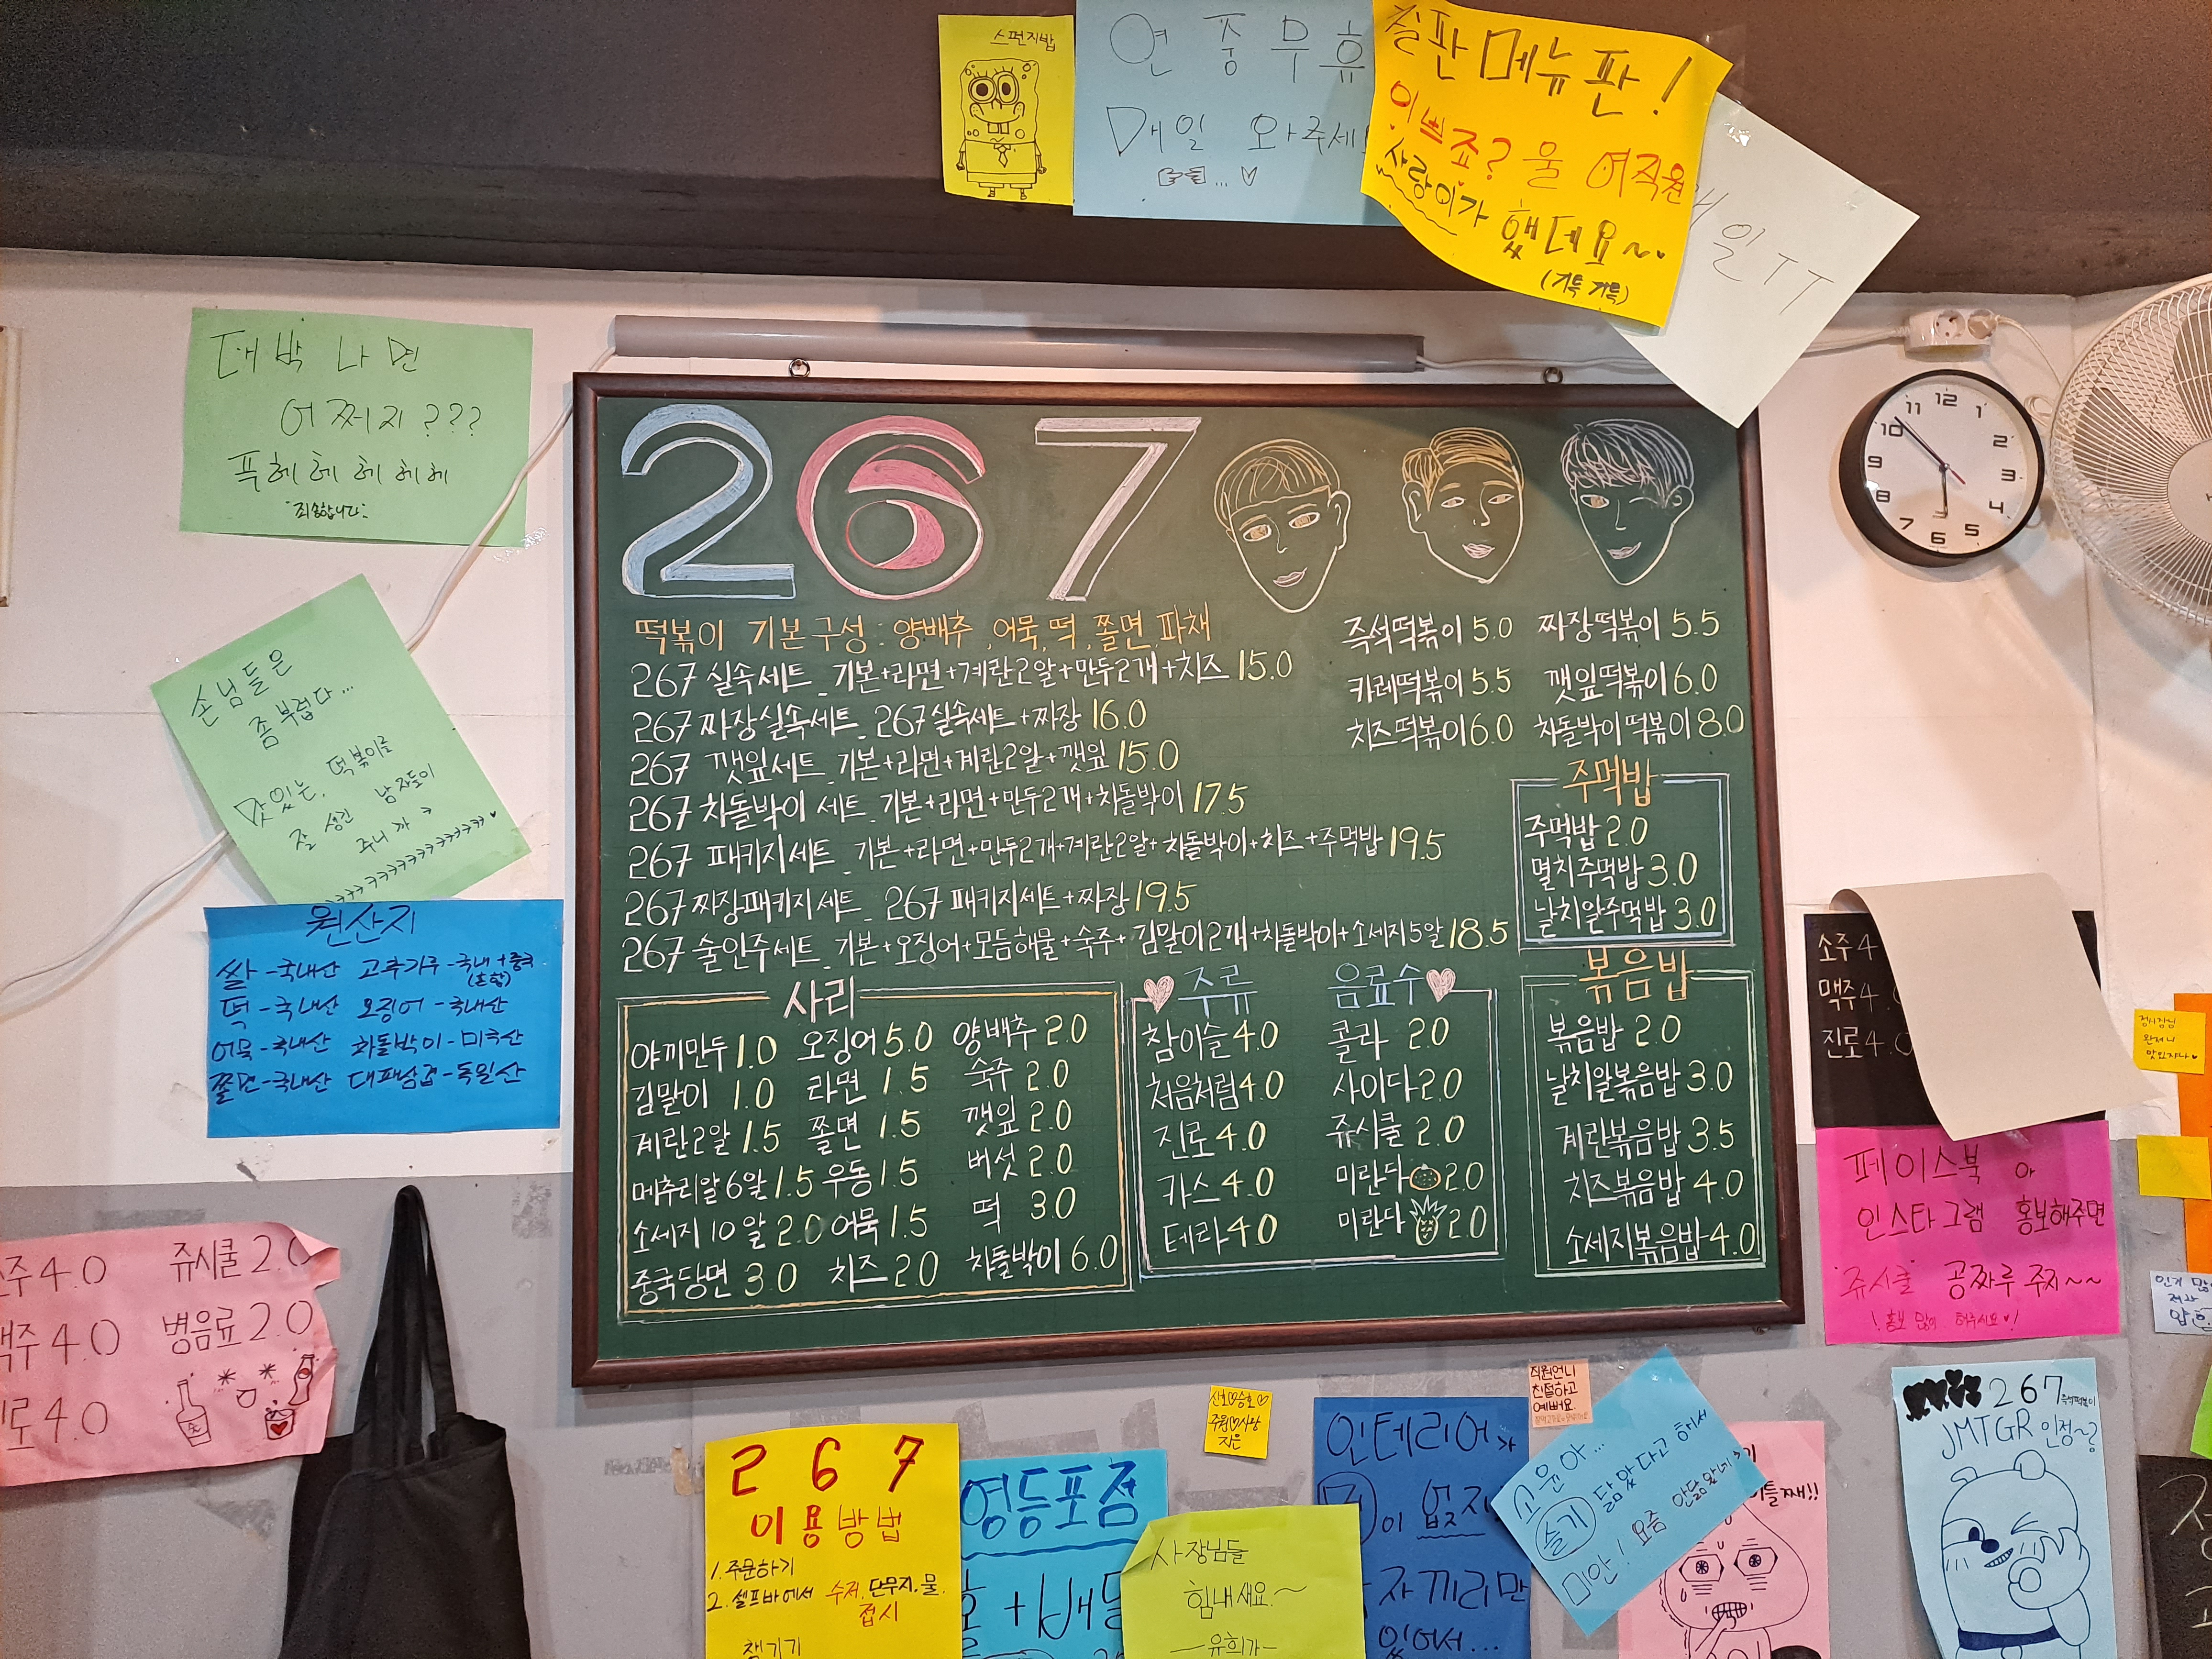 스펀지밥
연중무휴
매일 와주세
칠판메뉴판!
이쁘죠? 울 여직원
사랑이가 했데요~
(기특 기특)
일TT
대박나면
어쩌지???
푹헤헤헤헤헤
죄송합니다
손님들은
좀 부럽다...
맛있는, 떡볶이를
잘 생긴 남자들이
주니까 ㅋ
원산지
쌀-국내산 고추가루-국내+중국
(혼합)
떡-국내산 오징어-국내산
어묵-국내산 차돌박이-미국산
쫄면-국내산 대패삼겹-독일산
267
떡볶이 기본구성: 양배추, 어묵, 떡, 쫄면, 파채
267 실속세트_ 기본+라면+계란2알+만두2개+치즈 15.0
267 짜장실속세트_ 267실속세트+짜장 16.0
267 깻잎세트_ 기본+라면+계란2알+깻잎 15.0
267 차돌박이 세트_ 기본+라면+만두2개+차돌박이 17.5
267 패키지세트_ 기본+라면+만두2개+계란2알+차돌박이+치즈+주먹밥 19.5
267 짜장패키지세트_ 267 패키지세트+짜장 19.5
267 술안주세트_ 기본+오징어+모듬해물+숙주+김말이2개+차돌박이+소세지5알 18.5
즉석떡볶이 5.0 짜장떡볶이 5.5
카레떡볶이 5.5 깻잎떡볶이 6.0
치즈떡볶이 6.0 차돌박이떡볶이 8.0
주먹밥
주먹밥 2.0
멸치주먹밥 3.0
날치알주먹밥 3.0
사리
야끼만두 1.0 오징어 5.0 양배추 2.0
김말이 1.0 라면 1.5 숙주 2.0
계란2알 1.5 쫄면 1.5 깻잎 2.0
메추리알6알 1.5 우동 1.5 버섯 2.0
소세지10알 2.0 어묵 1.5 떡 3.0
중국당면 3.0 치즈 2.0 차돌박이 6.0
주류 음료수
참이슬 4.0 콜라 2.0
처음처럼 4.0 사이다 2.0
진로 4.0 쥬시쿨 2.0
카스 4.0 미란다 2.0
테라 4.0 미란다 2.0
볶음밥
볶음밥 2.0
날치알볶음밥 3.0
계란볶음밥 3.5
치즈볶음밥 4.0
소세지볶음밥 4.0
12 1 2 3 4 5 6 7 8 9 10 11
소주 4
맥주 4.
진로 4.0
페이스북 or
인스타그램 홍보해주면
"쥬시쿨" 공짜루 주지~~
!홍보 많이 해주시요♥!
주 4.0 쥬시쿨 2.0
맥주 4.0 병음료 2.0
로 4.0
267
이용방법
1. 주문하기
2. 셀프바에서 수저, 단무지, 물
접시
챙기기
영등포점
사장님들
힘내세요~
-유희가-
인테리어가
이 없지
자끼리만
있어서...
직원언니
친절하고
예뻐요
고윤아...
슬기 닮았다고 해서
미안! 요즘 안닮았네
267
JMTGR 인정~?